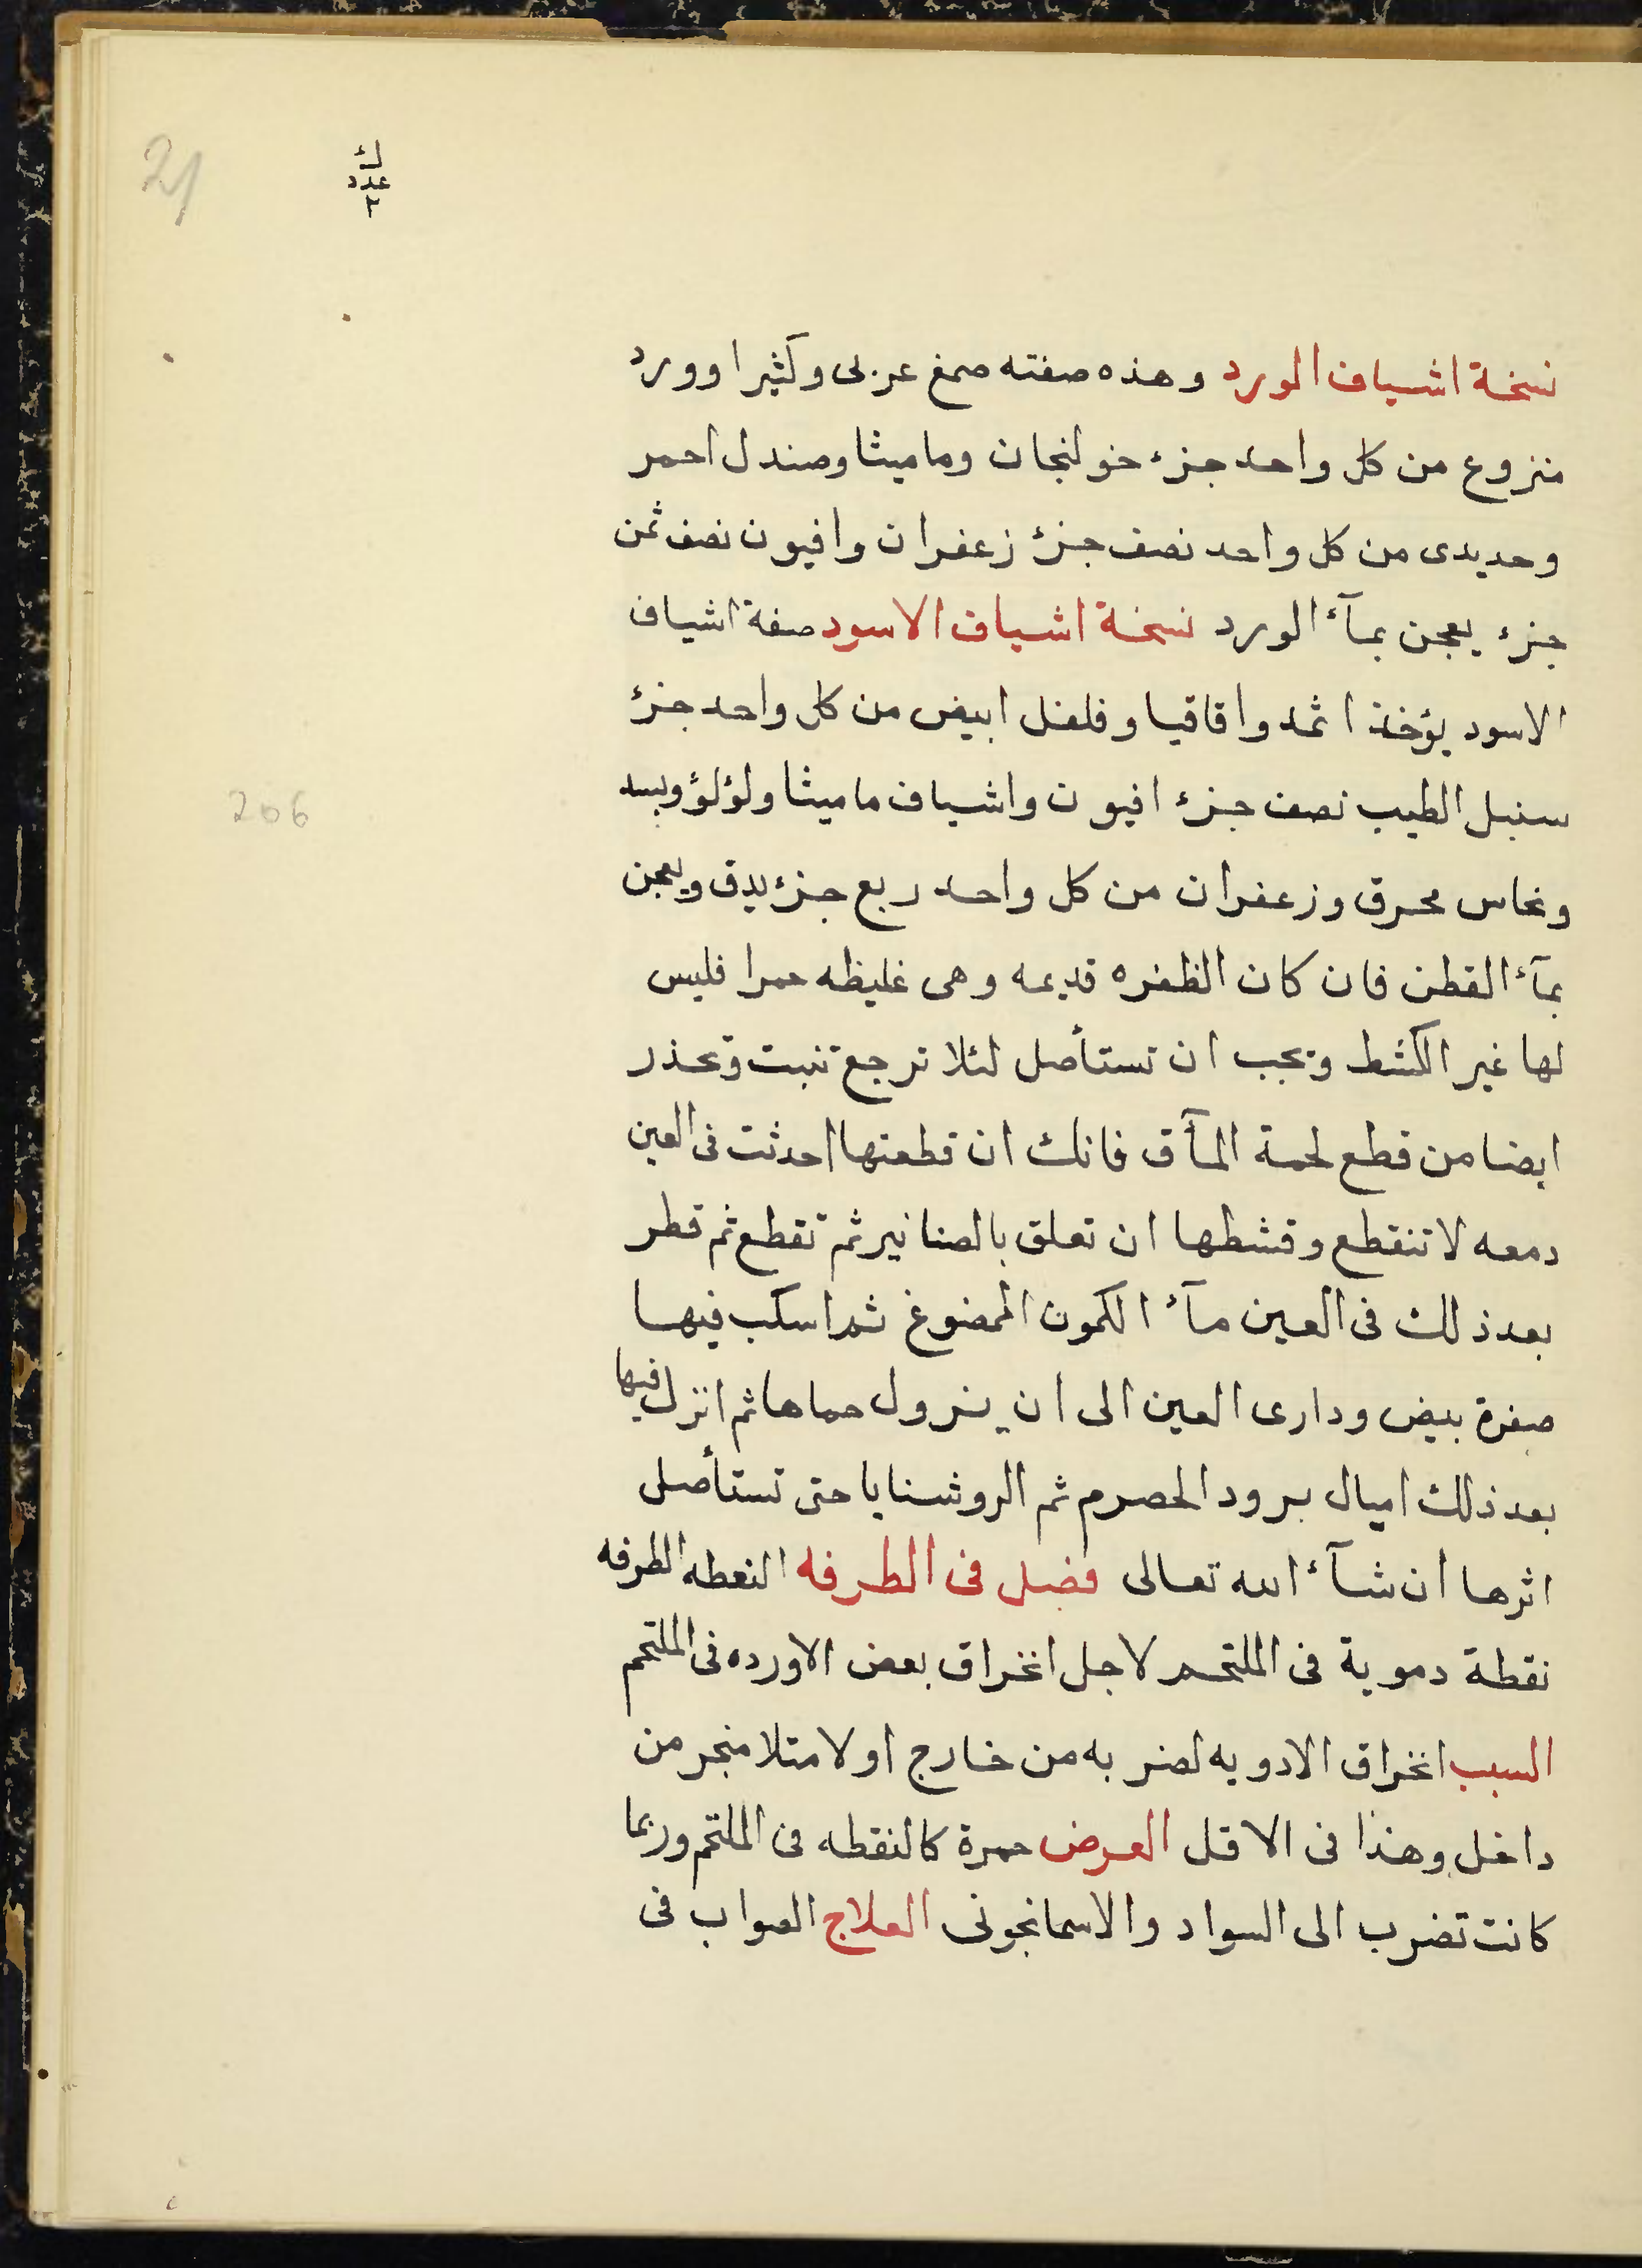 21
ك
عدد
٢
نسخة اشياف الورد وهذه صفته صمغ عربى وكثيرا وورد
منزوع من كل واحد جزء خولنجان وماميثا وصندل احمر
وحديدى من كل واحد نصف جزء زعفران وافيون نصف ثمن
جزء يعجن بمآء الورد نسخة اشياف الاسود صفة اشياف
الاسود يؤخذ اثمد واقاقيا وفلفل ابيض من كل واحد جزء
سنبل الطيب نصف جزء افيون واشياف ماميثا ولؤلؤ وبسد
206
ونحاس محرق وزعفران من كل واحد ربع جزء يدق ويعجن
بمآء القطن فان كان الظفره قديمه وهى غليظه حمرا فليس
لها غير الكشط ويجب ان تستأصل لئلا ترجع تنبت وتحذر
ايضا من قطع لحمة المآق فانك ان قطعتها احدثت فى العين
دمعه لا تنقطع وقشطها ان تعلق بالصنانير ثم تقطع ثم قطر
بعد ذلك فى العين مآء الكمون الممضوغ ثم اسكب فيها
صفرة بيض ودارى العين الى ان يزول حماها ثم انزل فيها
بعد ذلك اميال برود الحصرم ثم الروشنايا حتى تستأصل
اثرها ان شآء الله تعالى فضل فى الطرفه النعطه الطرفه
نقطة دموية فى الملتحم لاجل انخراق بعض الاورده فى الملتحم
السبب انخراق الادويه لضربه من خارج او لامتلا منجر من
داخل وهذا فى الاقل العرض حمرة كالنقطه فى الملتحم وربما
كانت تضرب الى السواد والاسمانجونى العلاج الصواب فى